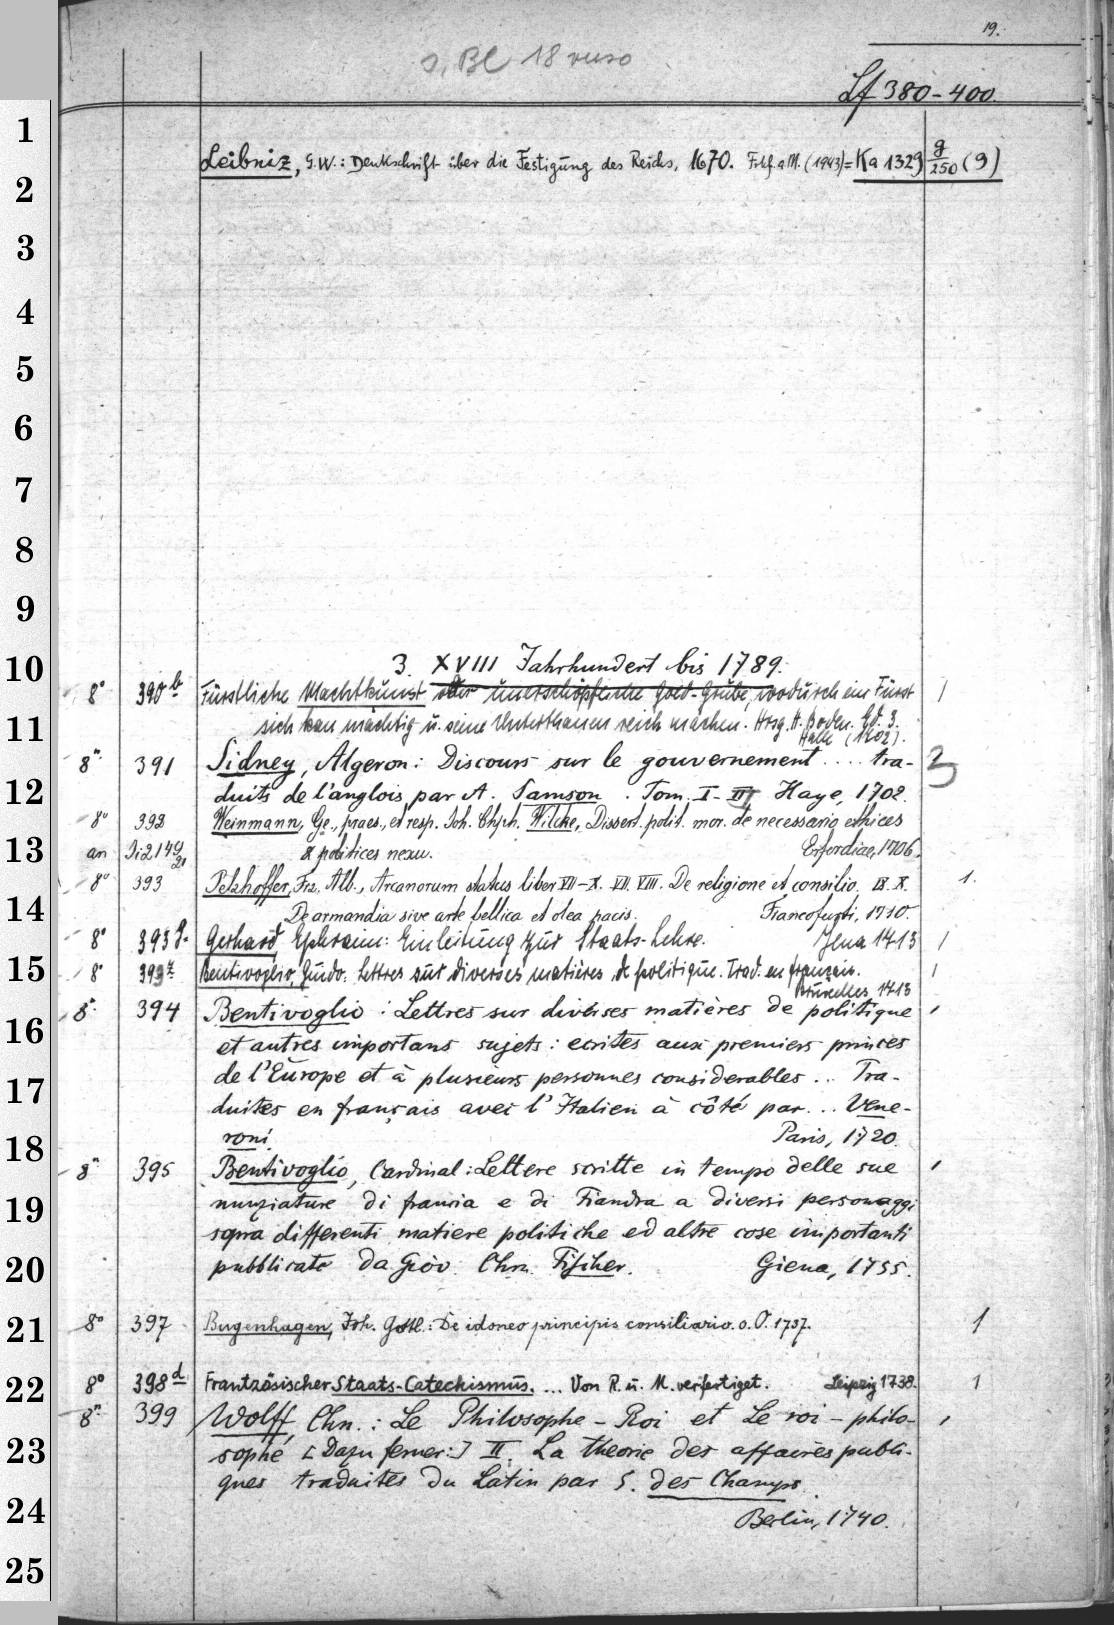 19.
s. Bl 18 verso
Lf 380-400.
1
Leibniz, G.W.: Denkschrift über die Festigung des Reichs, 1670. Fkf. a M. (1943) = Ka 1329 g/250 (9)
2
3
4
5
6
7
8
9
10
3. XVIII Jahrhundert bis 1789.
8° 390 b Fürstliche Machtkunst oder unerschöpfliche Gold-Grube, wodurch ein Fürst 1
11
sich kan mächtig u. seine Unterthanen reich machen. Hrsg. H. Boden. Ed. 3.
Halle (1702).
8° 391 Sidney, Algeron: Discours sur le gouvernement .... tra- 3
12
duits de l'anglois par A. Samson. Tom. I-III Haye, 1702.
8° 392 Weinmann, Ge., praes., et resp. Joh. Chph. Wilcke, Dissert. polit. mor. de necessario ethices
13
an Di 2149 21 & politices nexu. Erfordiae, 1706.
8° 393 Pelzhoffer, Frz. Alb., Arcanorum status liber VII-X. VII. VIII. De religione et consilio. IX. X. 1.
14
De armandia sive arte bellica et olea pacis. Francofurti, 1710.
8° 393 g. Gerhard, Ephraim: Einleitung zur Staats-Lehre. Jena 1713 1
15
8° 393 z Bentivoglio, Guido: Lettres sur diverses matières de politique. Trad. en français. 1
Bruxelles 1713
8° 394 Bentivoglio: Lettres sur diverses matières de politique 1
16
et autres importans sujets: ecrites aux premiers princes
17
de l'Europe et à plusieurs personnes considerables ... Tra-
duites en français avec l'Italien à côté par ... Vene-
18
roni Paris, 1720.
8° 395 Bentivoglio, Cardinal: Lettere scritte in tempo delle sue 1
19
nunziature di francia e di Fiandra a diversi personaggi
sopra differenti matiere politiche ed altre cose importanti
20
pubblicate da Giov. Chn. Fischer. Giena, 1755.
21
8° 397 Bugenhagen, Joh. Gottl.: De idoneo principis consiliario. o. O. 1737. 1
22
8° 398 d Frantzösischer Staats-Catechismus. ... Von R. u. M. verfertiget. Leipzig 1738. 1
8° 399 Wolff, Chn.: Le Philosophe-Roi et Le roi-philo- 1
23
sophe [Dazu ferner:] II. La theorie des affaires publi-
ques traduites du Latin par S. des Champs.
24
Berlin, 1740.
25